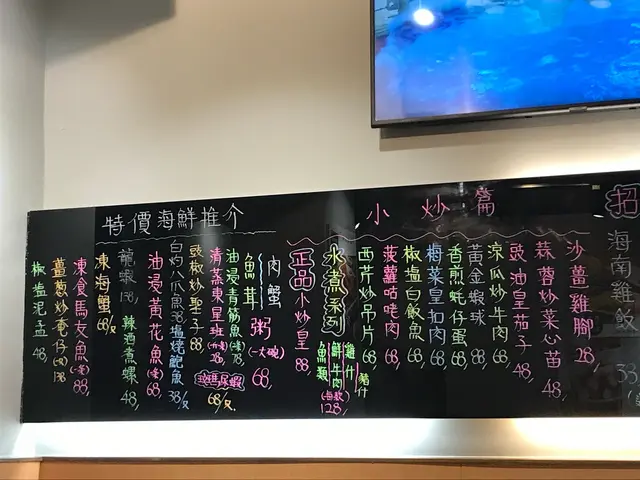 招
海南雞飯
33
小炒篇
沙薑雞腳 28
蒜蓉炒菜心苗 48
豉油皇茄子 48
涼瓜炒牛肉 68
黃金蝦球 88
香煎蚝仔蛋 68
梅菜皇扣肉 68
椒塩白飯魚 68
菠蘿咕咾肉 68
西芹炒吊片 68
水煮系列
雞什 豬什
鮮牛肉
魚類
(每款)
128
正品小炒皇 88
特價海鮮推介
肉蟹
魚茸粥 (一大碗) 68
油浸青筋魚 78
清蒸東星班
豉椒炒聖子 88
白灼八爪魚 38
塩燒鮀魚 38/友
瀨尿蝦 68/友
油浸黃花魚 68
龍蝦 138
辣酒煮螺 48
凍海蟹 68/友
凍食馬友魚 88
薑葱炒奄仔 138
椒塩泥孟 48